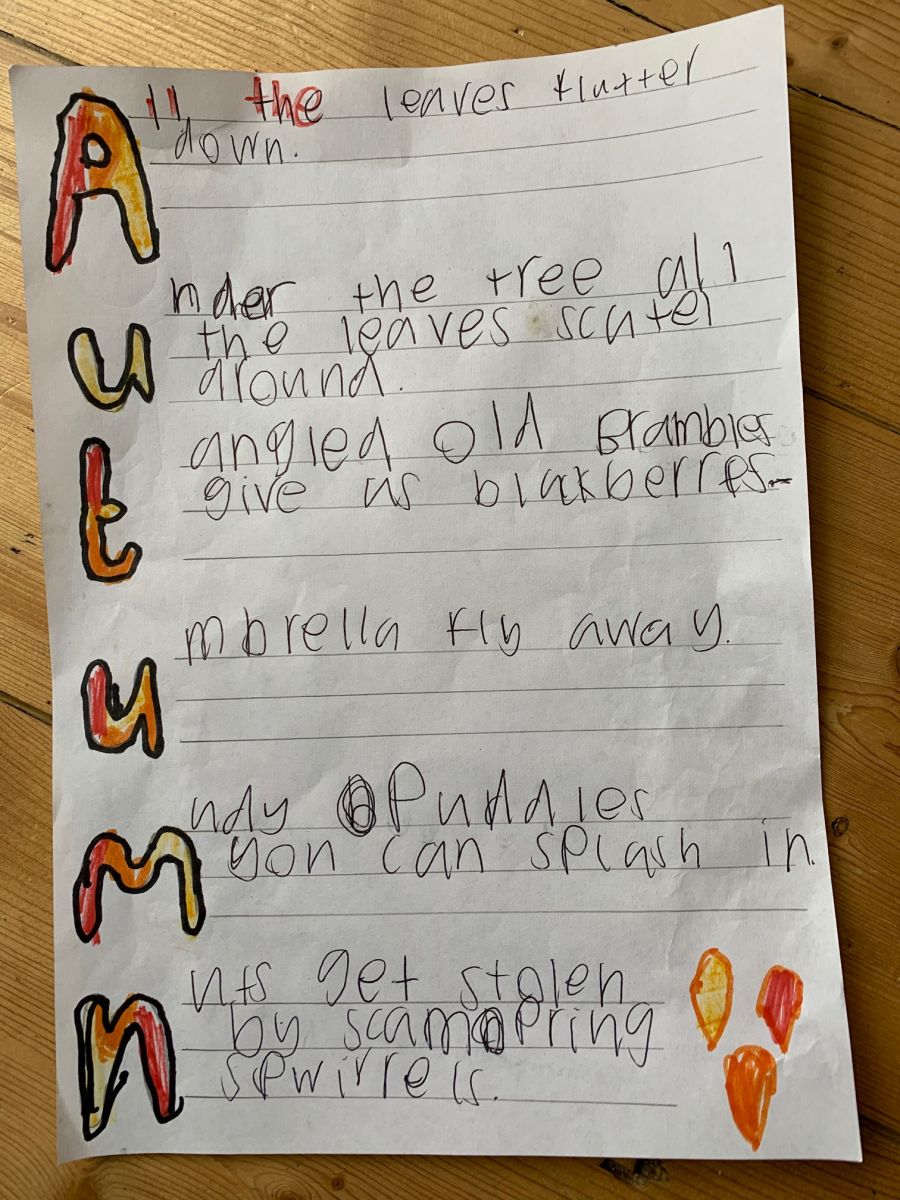 All the leaves flutter
down.
under the tree all
the leaves scutel
around.
tangled old Brambles
give us blakberres.
umbrella fly away.
mudy Puddles
you can splash in.
nuts get stolen
by scampring
spwirrels.